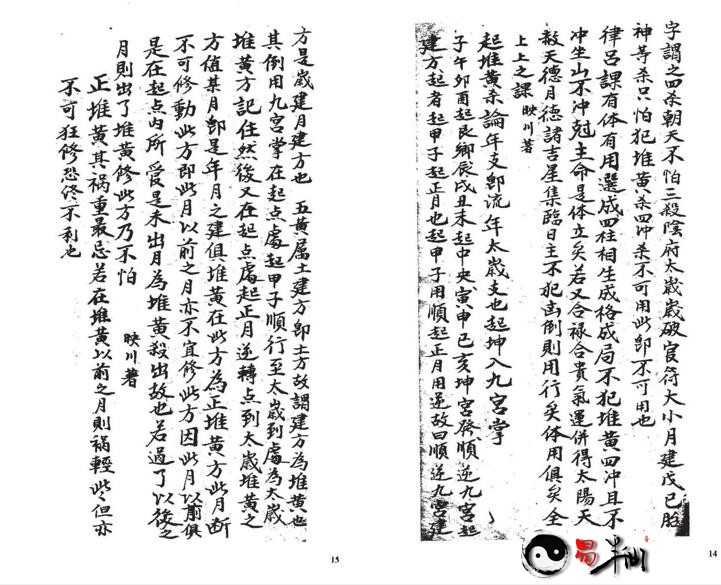 字謂之四朵朝天不怕三殺陰府太歲歲破官符大小月建戊己胎
神等杀只怕犯堆黄杀四冲杀不可用此即不可用也
律呂課有体有用選成四柱相生成格成局不犯堆黄四冲且不
冲坐山不冲尅主命是体立矣若又合禄合貴氣運併得太陽天
赦天德月德諸吉星集臨日主不犯凶倒則用行矣体用俱矣全
上上之課 映川著
起堆黄杀論年支即流年太歲支也起坤入九宮掌
子午卯酉起艮卿辰戌丑未起中央寅申巳亥坤宮發順逆九宮起
建方起者起甲子起正月也起甲子用順起正月用逆故曰順逆九宮建
14
方是歲建月建方也 五黄属土建方即土方故謂建方為堆黄也
其倒用九宮掌在起点處起甲子順行至太歲到處為太歲
堆黄方記住然後又在起点處起正月逆轉点到太歲堆黄之
方值某月即是年月之建俱堆黄在此方為正堆黄方此月断
不可修動此方即此月以前之月亦不宜修此方因此月以前俱
是在起点内所 是未出月為堆黄殺出故也若過了以後之
月則出了堆黄修此方乃不怕 映川著
正堆黄其祸重最忌若在堆黄以前之月則祸輕些但亦
不可狂修恐终不利也
15
易